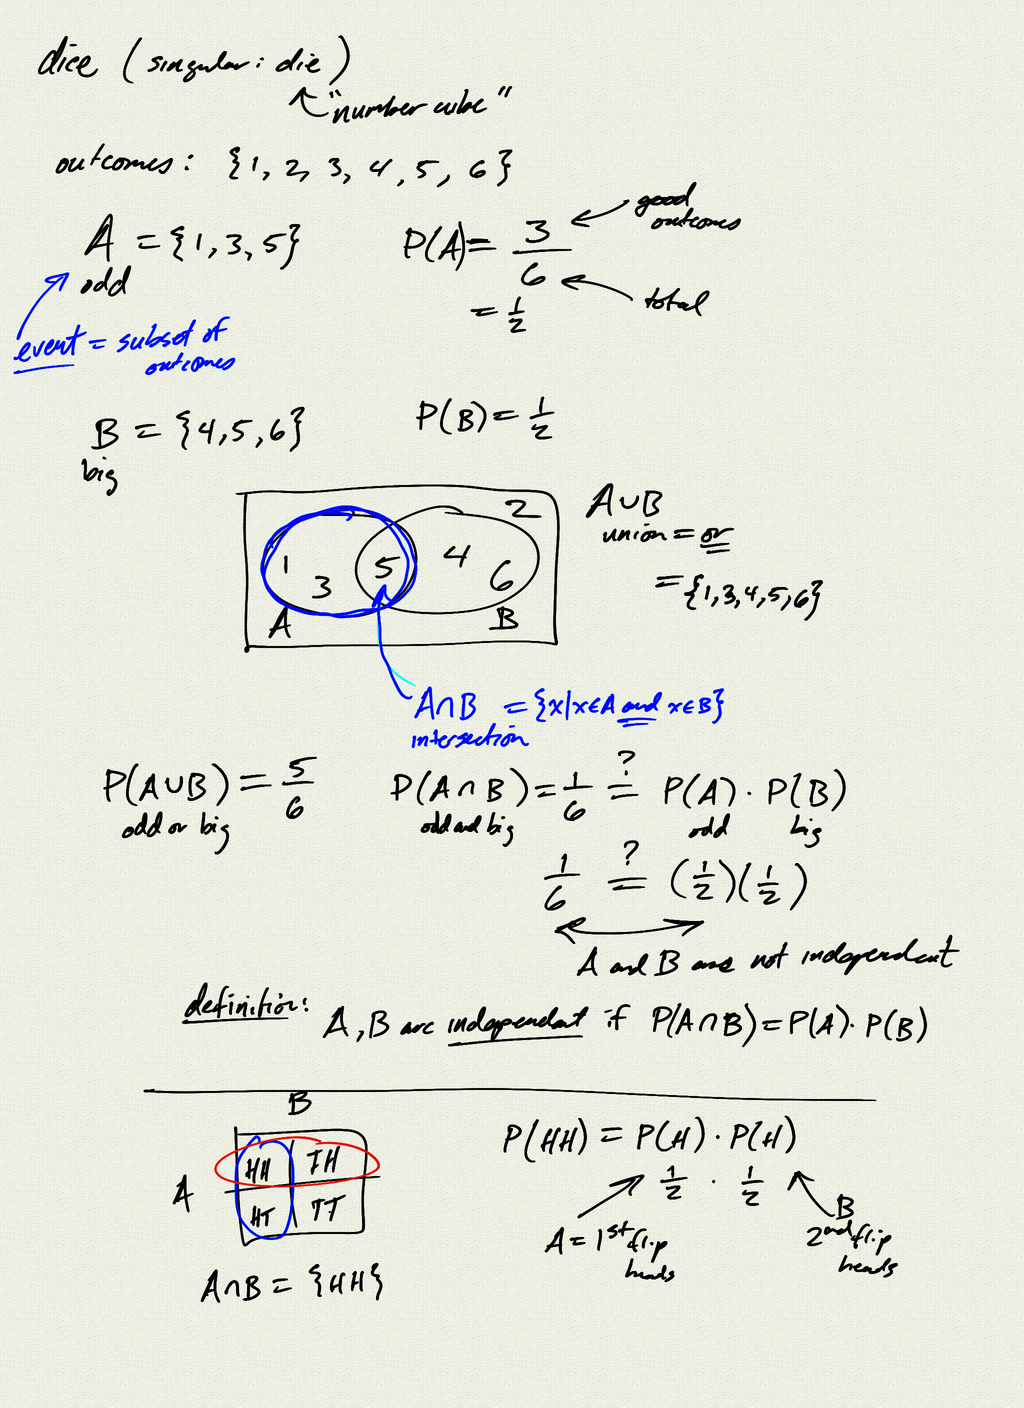 dice (singular: die)
"number cube"
outcomes: {1, 2, 3, 4, 5, 6}
A = {1, 3, 5}
odd
P(A) = 3/6
good outcomes
total
= 1/2
event = subset of
outcomes
B = {4, 5, 6}
big
P(B) = 1/2
2
1 3 5 4 6
A B
A∪B
union = or
= {1, 3, 4, 5, 6}
A∩B = {x|x∈A and x∈B}
intersection
P(A∪B) = 5/6
odd or big
P(A∩B) = 1/6 ?= P(A) · P(B)
odd and big odd big
1/6 ?= (1/2)(1/2)
A and B are not independent
definition: A, B are independent if P(A∩B) = P(A) · P(B)
B
A
HH TH
HT TT
A∩B = {HH}
P(HH) = P(H) · P(H)
1/2 · 1/2
A = 1st flip
heads
B
2nd flip
heads